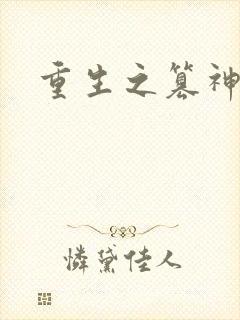 重生之篡神
憐黛佳人